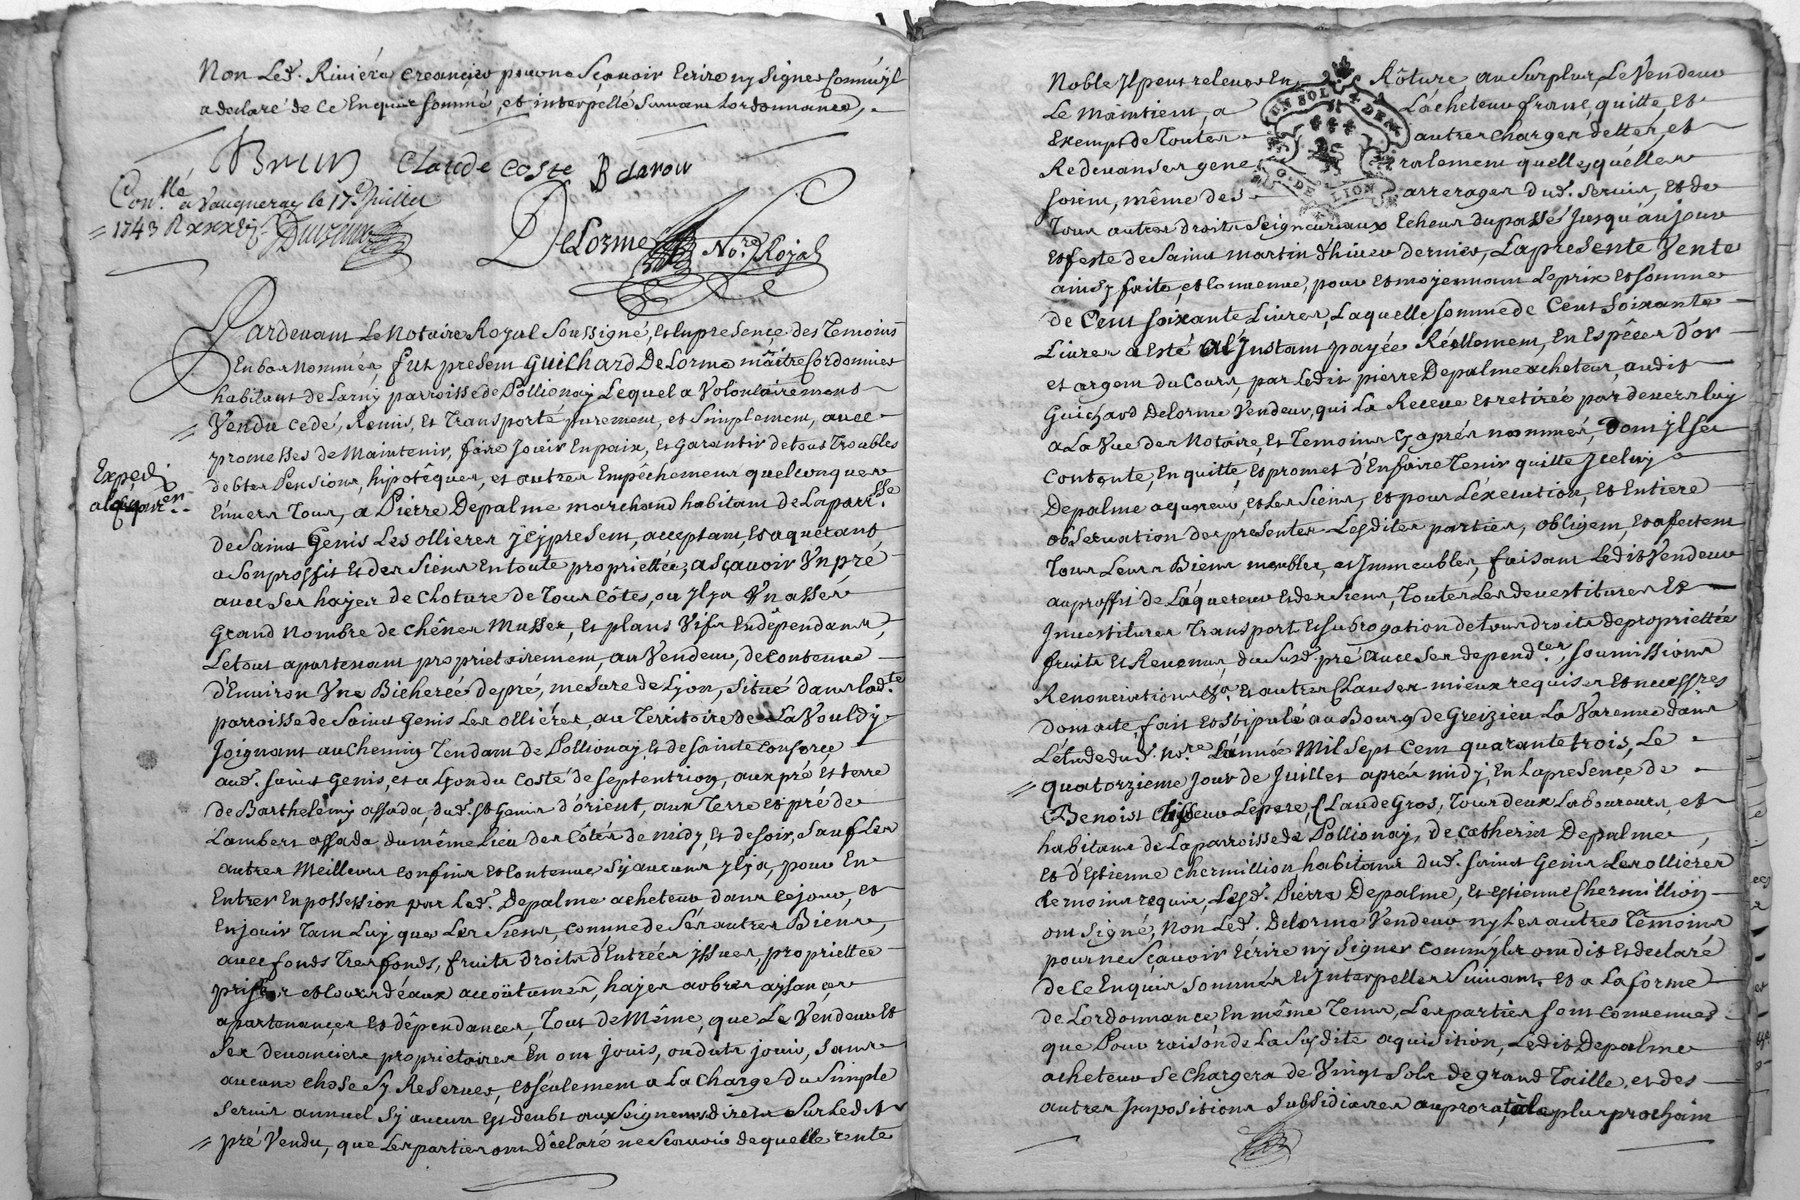 Non Led. Riviére creancier pour ne sçavoir Ecrire ny signer comm'yl
a declaré de ce Enquis sommé, et interpellé Suivant Lordonnance,
Brun Claude Coste B danoir
Con.llé a Vaugneray le 17e Juillet
1743 R
DeLorme No.re Royal
Pardevant Le Notaire Royal Soussigné, et En presençe des Temoins
En bas nommés, fut present Guichard DeLorme maître Cordonnier
habitant de Larny parroisse de Pollionay Lequel a Volontairement
Vendu cedé, Remis, et Transporté purement, et Simplement, avec
promesses de Maintenir, faire Jouir En paix, et Garentir de tous Troubles
Expedi
a l'aquer.en
debtes Pensions, hipotêques, et autres Empêchemens quelconques
Envers Tous, a Pierre Depalme marchand habitant de La parr.sse
de Saint Genis Les ollieres Jcy present, acceptant, et aquerant,
a Son proffit et des Siens En toute propriettée; asçavoir Vn pré
avec ses hayes de cloture de Tous Côtes, ou Jl y a Vn assés
Grand nombre de chênes Musses, et plans Vifs En dépendans,
Le tout apartenant proprietairement, au Vendeur, de Contenue
d'Environ Vne Bicherée de pré, mesure de Lyon, Situé dans lad.te
parroisse de Saint Genis Les olliéres, au Territoire de La Vouldy
Joignant au Chemin Tendant de Pollionay, et de sainte Consorce
aud. saint Genis, et a Lyon du Costé de septentrion, aux pré et terre
de Barthelemy assada, dud. St Genis d'orient, aux Terre et pré de
Lambert assada du même Lieu des Côtés de midy, et de soir, sauf Les
autres Meilleurs confins et Contenue Sy aucuns yl y a, pour En
Entrer En possession par Led. Depalme acheteur dans ce jour, et
En jouir Tant Luy que Les Siens, comme de Sés autres Biens,
avec fonds Tresfonds, fruits droits d'Entrées yssues, propriettée
prises et Cours d'éaux accoûtumés, hayes arbres aysançes
apartenançes et dêpendances, Tout de Même, que Le Vendeur et
Ses devanciers proprietaires En ont jouis, ou dut jouir, sans
aucune chose Sy Reserver, et séulement a La Charge du Simple
Servis annuel Sy aucun Est deubt aux Seigneurs directs Sur Ledit
pré Vendu, que Les parties ont Déclaré ne Scavoir de quelle rente
Noble Jl peut relever En Rôture au Surplus, Le Vendeur
Le Maintient, a L'acheteur franc, quitte, et
Exempt de Toutes autres charges, dettes, et
Redevanses gene ralement quelles quélles
soient, même des arrerages dud. servis, et de
Tous autres droits Seigneuriaux Echeus du passés Jusqu'aujour
et feste de Saint Martin d'hiver dernier, La presente Vente
ainsy faite, et Convenue, pour et moyennant Le prix et somme
de Cent soixante Livres, Laquelle somme de Cent Soixante
Livres a Esté a L'Jnstant payée Réellement, En Espéces d'or
et argent du Cours, par Ledit pierre Depalme acheteur, audit
Guichard Delorme Vendeur, qui La Receue et retirée par devers luy
a La Vue des Notaire, et Temoins Cy aprés nommés, Dont yl sen
Contente, En quitte, et promet d'En faire Tenir quitte Jceluy
Depalme aquereur, et Les Siens, et pour L'éxecution, et Entiere
observation des presentes Lesdites parties, obligent, et afectent
Tous Leurs Biens meubles, et Jmmeubles, faisant Ledit Vendeur
au proffit de L'aquereur et des siens, Toutes Les devestitures et
Jnvestitures Transport et Subrogation de tous droits de proprieté
fruits et Revenus, du Susd. pré avec Ses depend.ces, soumissions
Renonciations &a. et autres Clauses mieux requises et necess.res
dont acte, fait et stipulé au Bourg de Greizieu La Varenne dans
L'étude dud. No.re Lannée Mil sept cent quarante trois, Le
quatorzieme Jour de Juillet aprés midy, En La presençe de
Benoist Lepere, Claude Gros, Tous deux Laboureurs, et
habitans de La parroisse de Pollionay, de Catherin Depalme
et d'Estienne Chermillion habitans dud. saint Genis Les ollieres
temoins requis, Lesd. Pierre Depalme, et Estienne Chermillion
ont signé, Non Led. Delorme Vendeur ny Les autres Temoins
pour ne Sçavoir Ecrire ny Signer comm'yls ont dit et declaré
de ce Enquis sommés et Jnterpellés Suivant et a La forme
de Lordonnance, En même Tems, Les parties sont convenues
que Pour raison de La Susdite aquisition, Ledit Depalme
acheteur Se Chargera de Vingt Sols de grand Taille et des
autres Jmpositions Subsidiaires au prorata, a la plus prochain
UN SOL 4 DEN.
G. DE LION